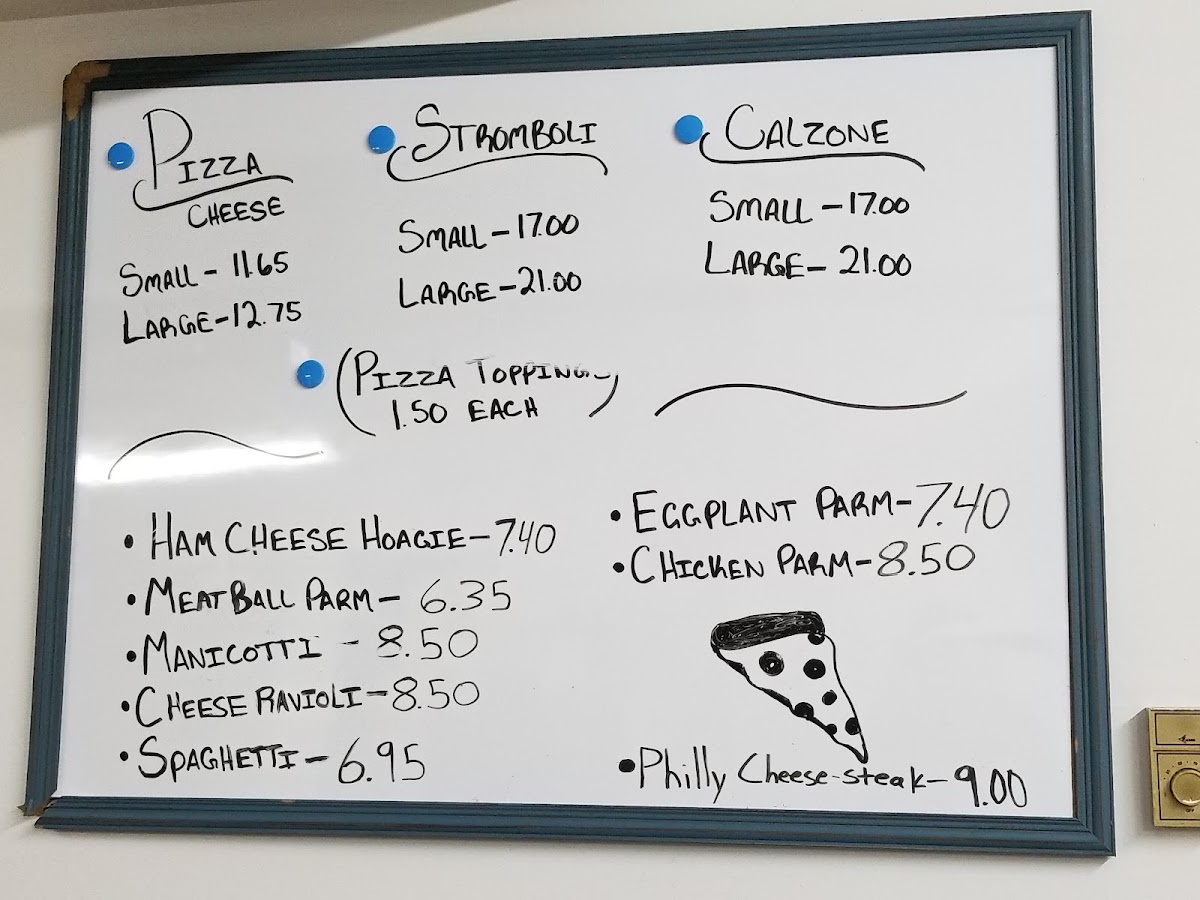 PIZZA
CHEESE
SMALL - 11.65
LARGE - 12.75
STROMBOLI
SMALL - 17.00
LARGE - 21.00
CALZONE
SMALL - 17.00
LARGE - 21.00
(PIZZA TOPPINGS)
1.50 EACH
• HAM CHEESE HOAGIE - 7.40
• MEATBALL PARM - 6.35
• MANICOTTI - 8.50
• CHEESE RAVIOLI - 8.50
• SPAGHETTI - 6.95
• EGGPLANT PARM - 7.40
• CHICKEN PARM - 8.50
• Philly Cheese-steak - 9.00